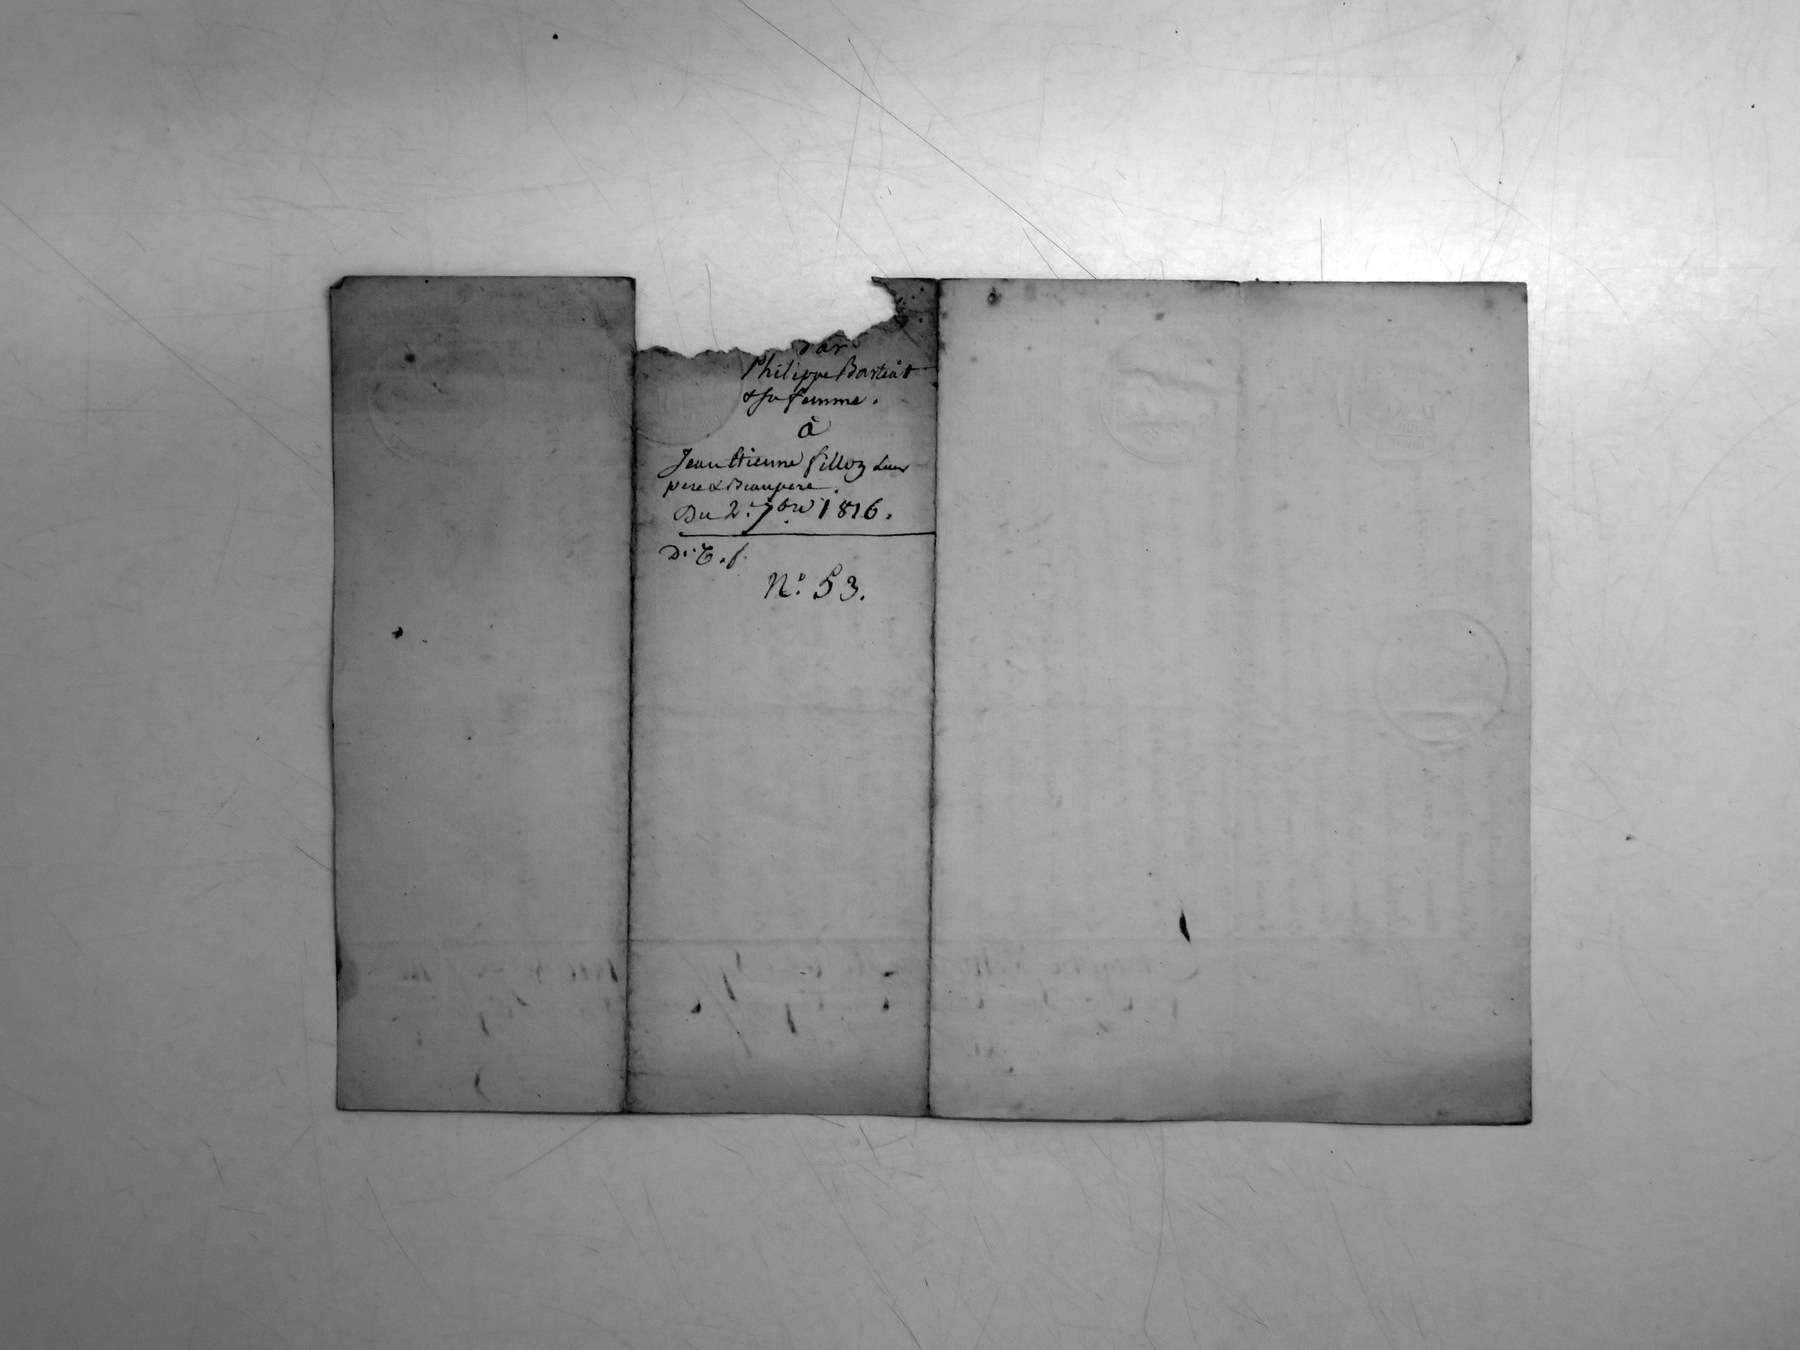 Par
Philippe Bartent
& sa femme.
à
Jean Etienne filloz Leur
pere & Beaupere.
Du 2. 7bre 1816.
D. T. f.
N.° 53.